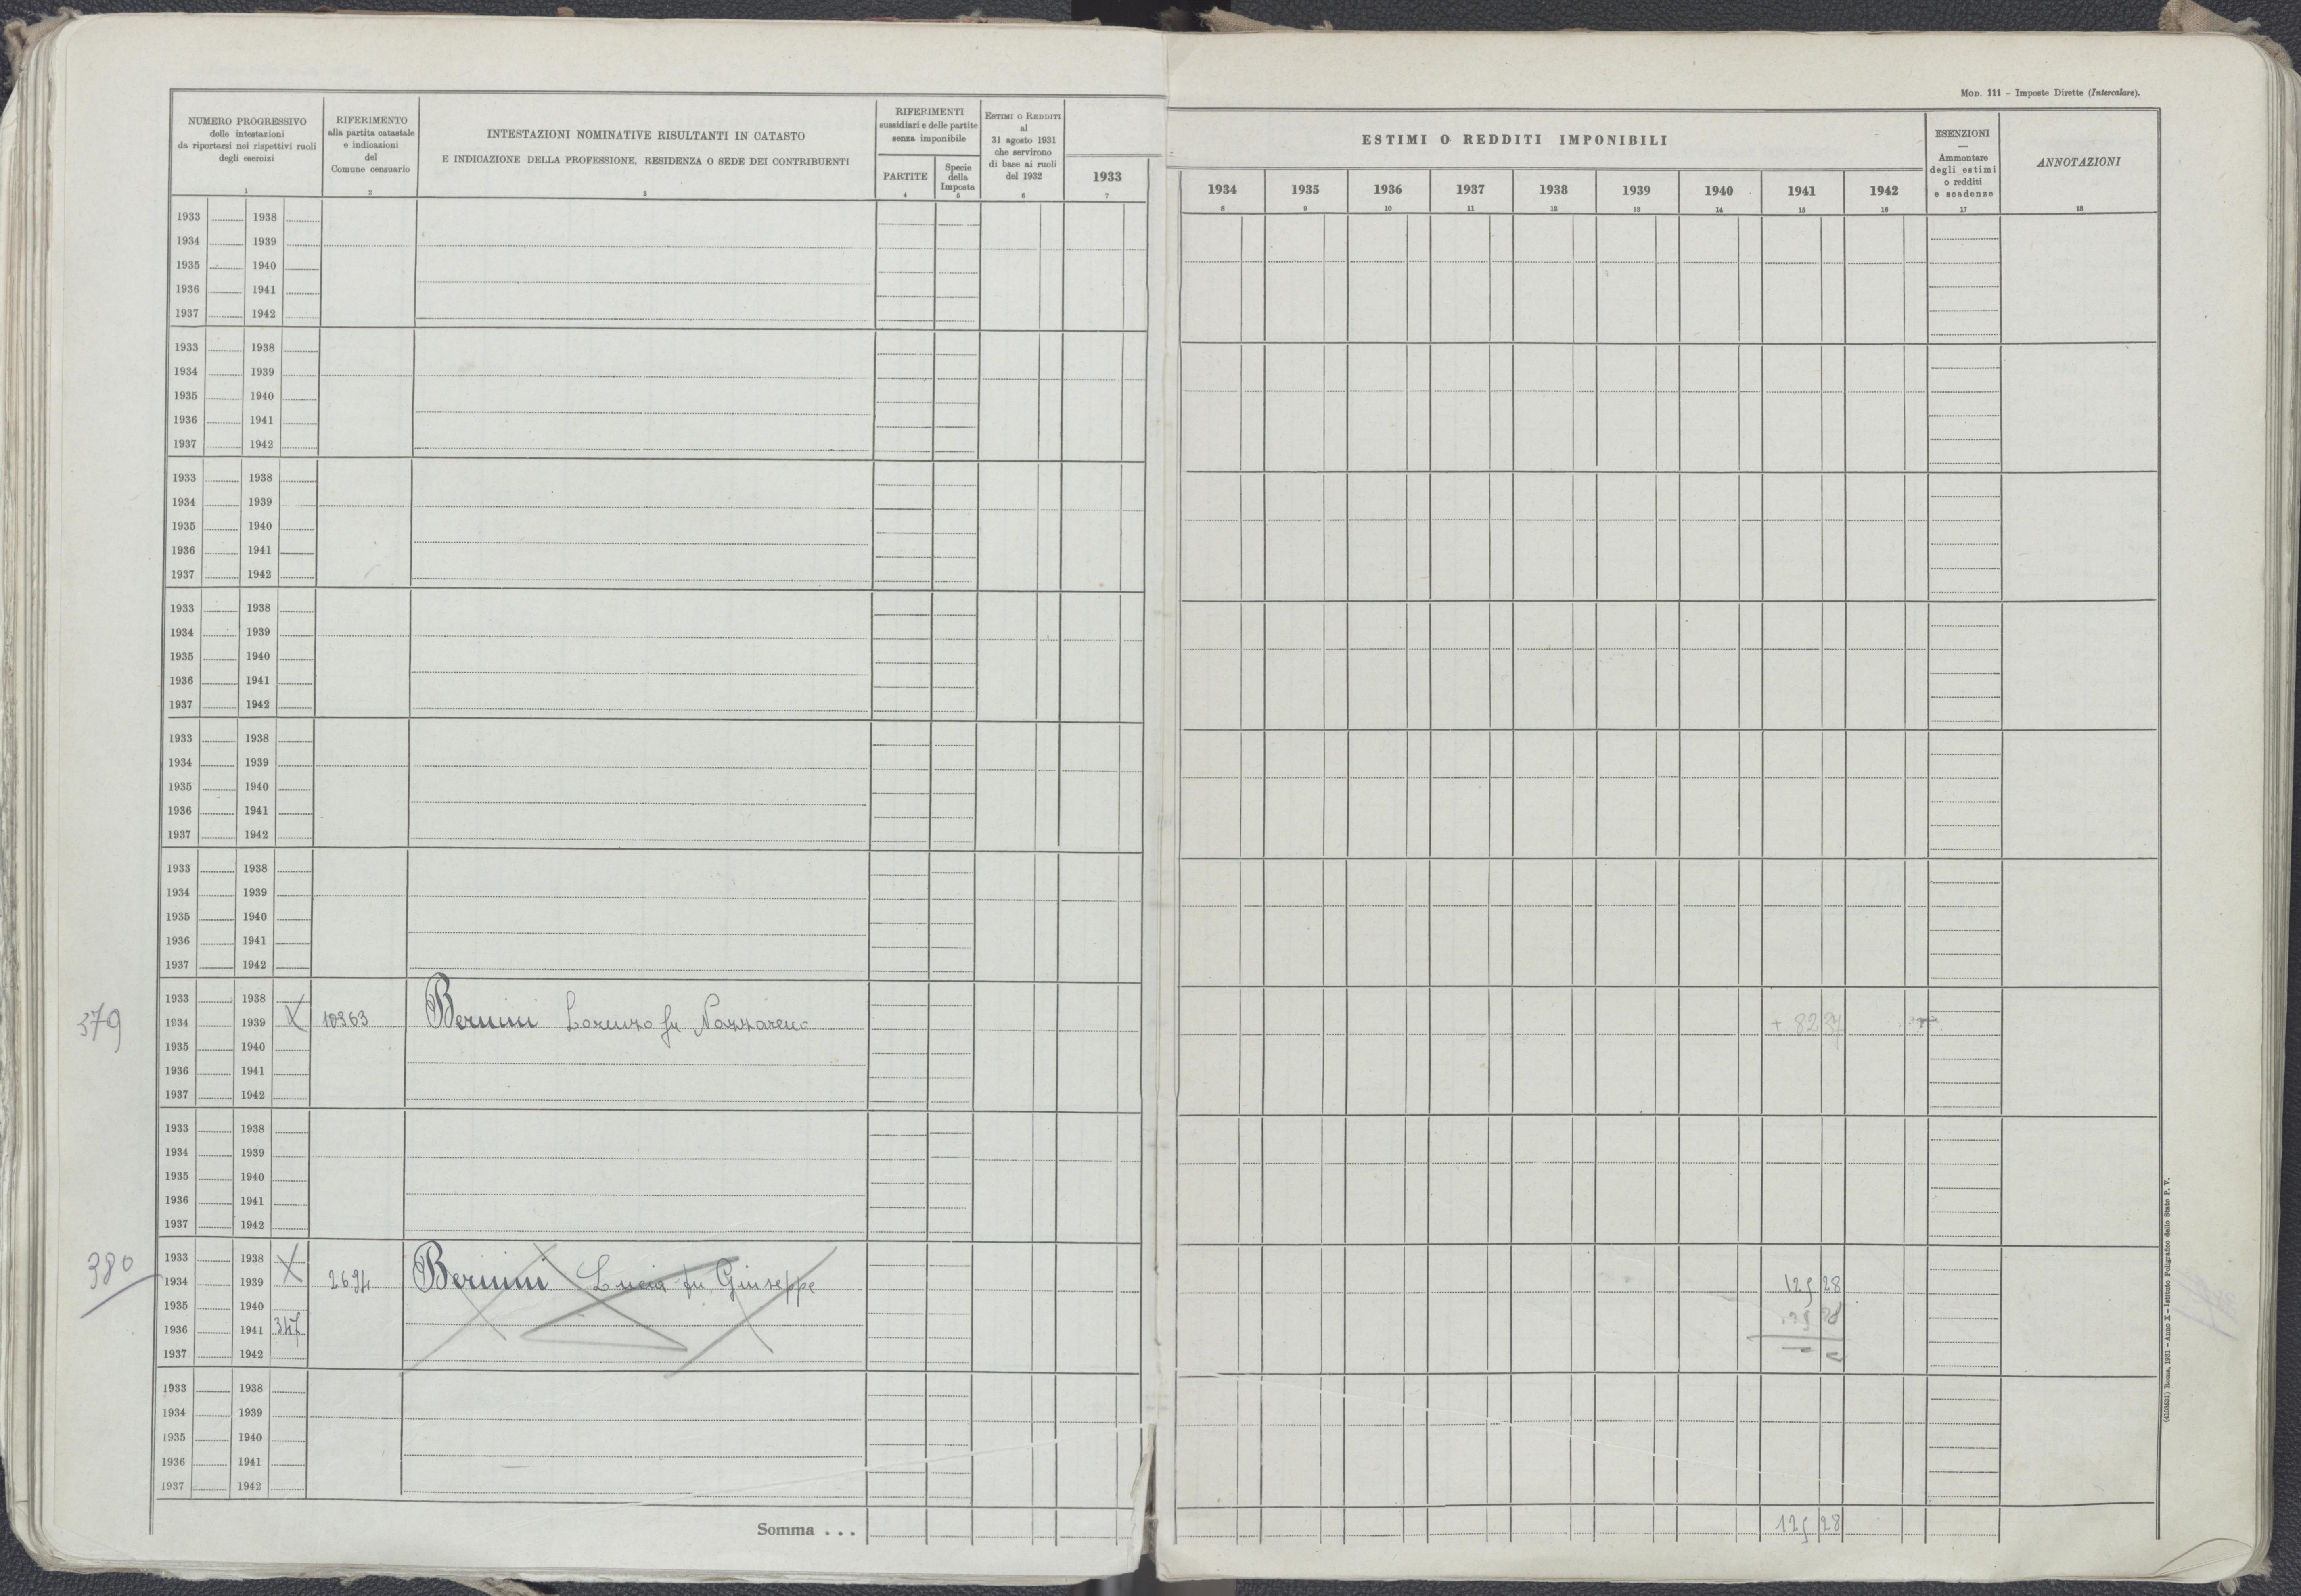 Mod. 111 – Imposte Dirette (Intercalare).
NUMERO PROGRESSIVO
delle intestazioni
da riportarsi nei rispettivi ruoli
degli esercizi
1
RIFERIMENTO
alla partita catastale
e indicazioni
del
Comune censuario
2
INTESTAZIONI NOMINATIVE RISULTANTI IN CATASTO
E INDICAZIONE DELLA PROFESSIONE, RESIDENZA O SEDE DEI CONTRIBUENTI
3
RIFERIMENTI
sussidiari e delle partite
senza imponibile
PARTITE
4
Specie
della
Imposta
5
Estimi o Redditi
al
31 agosto 1931
che servirono
di base ai ruoli
del 1932
6
ESTIMI O REDDITI IMPONIBILI
1933 1934 1935 1936 1937 1938 1939 1940 1941 1942
7 8 9 10 11 12 13 14 15 16
ESENZIONI
—
Ammontare
degli estimi
o redditi
e scadenze
17
ANNOTAZIONI
18
1933 1938
1934 1939
1935 1940
1936 1941
1937 1942
1933 1938
1934 1939
1935 1940
1936 1941
1937 1942
1933 1938
1934 1939
1935 1940
1936 1941
1937 1942
1933 1938
1934 1939
1935 1940
1936 1941
1937 1942
1933 1938
1934 1939
1935 1940
1936 1941
1937 1942
1933 1938
1934 1939
1935 1940
1936 1941
1937 1942
1933 1938
379 1934 1939 X 10363 Bernini Lorenzo fu Nazzareno + 82
1935 1940
1936 1941
1937 1942
1933 1938
1934 1939
1935 1940
1936 1941
1937 1942
380 1933 1938 X
1934 1939 2694 Bernini Lucia fu Giuseppe 125 28
1935 1940
1936 1941 347
1937 1942
1933 1938
1934 1939
1935 1940
1936 1941
1937 1942
Somma . . . 125 28
Roma, 1931 – Anno X – Istituto Poligrafico dello Stato P. V.